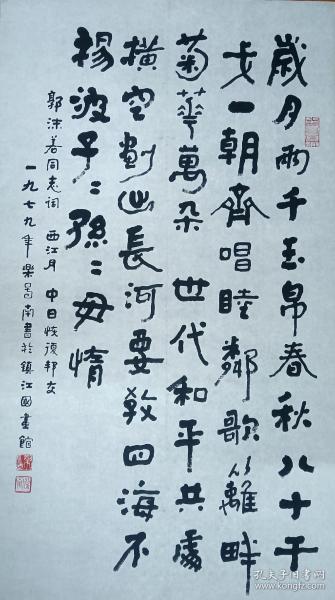 歲月兩千玉帛春秋八十干
戈一朝齊唱睦鄰歌籬畔
菊華萬朵世代和平共處
橫空劃出長河要教四海不
揚波子〻孫〻毋惰
郭沫若同志詞 西江月 中日恢復邦交
一九七九年樂南書於鎮江國畫館
孔夫子旧书网